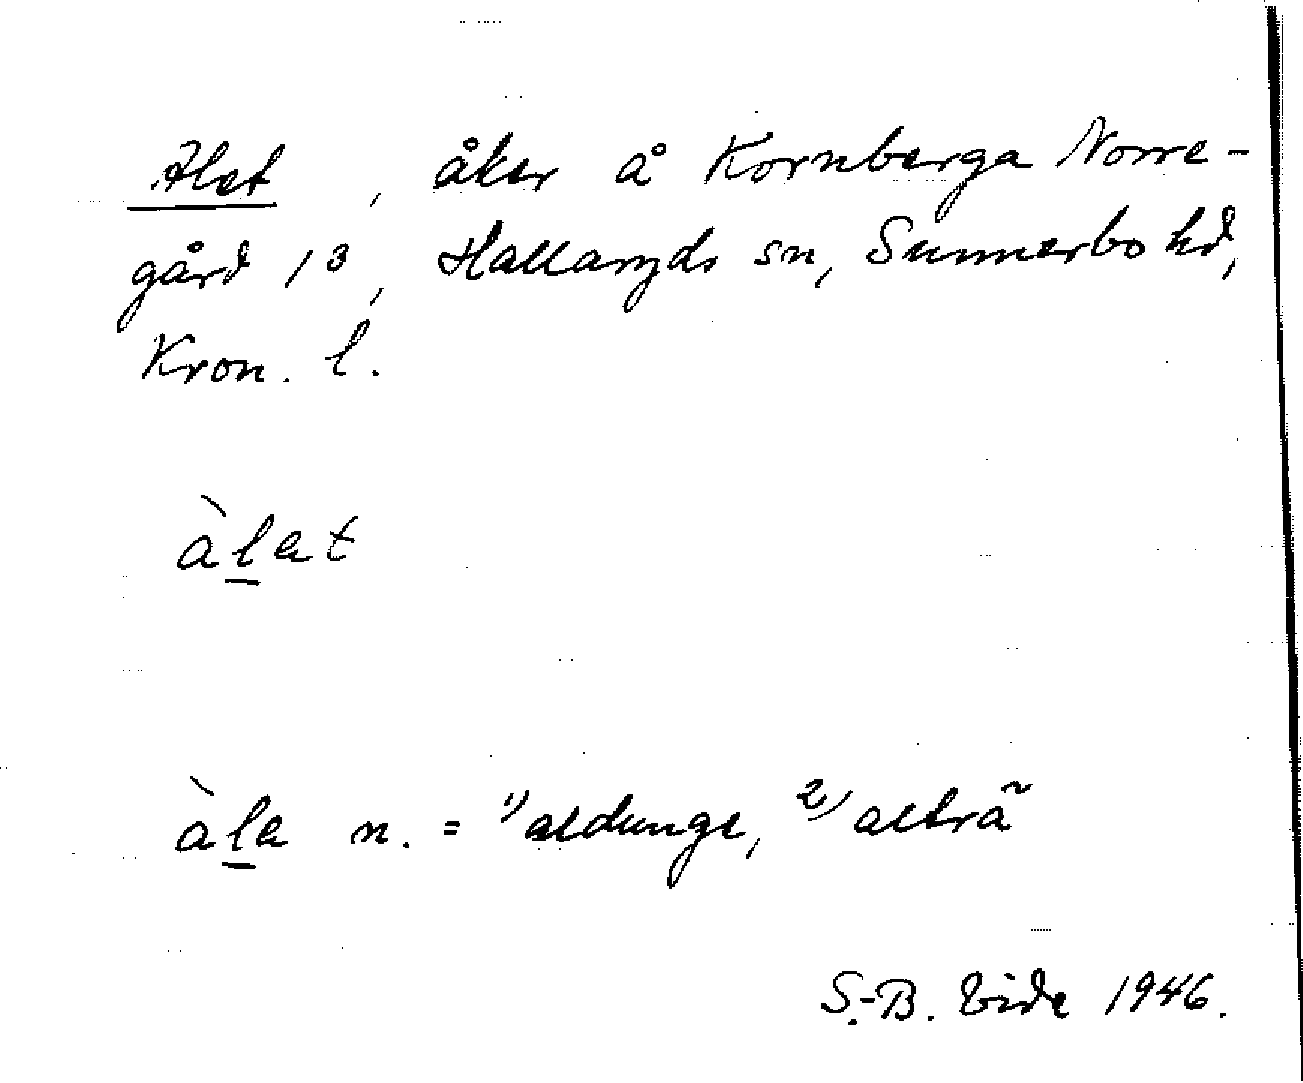 Alet, åker å Kornberga Norre-
gård 1³, Hallaryds sn, Sunnerbo hd,
Kron. l.
àlat
àla n. = 1) aldunge, 2) alträ
S.-B. Vide 1946.